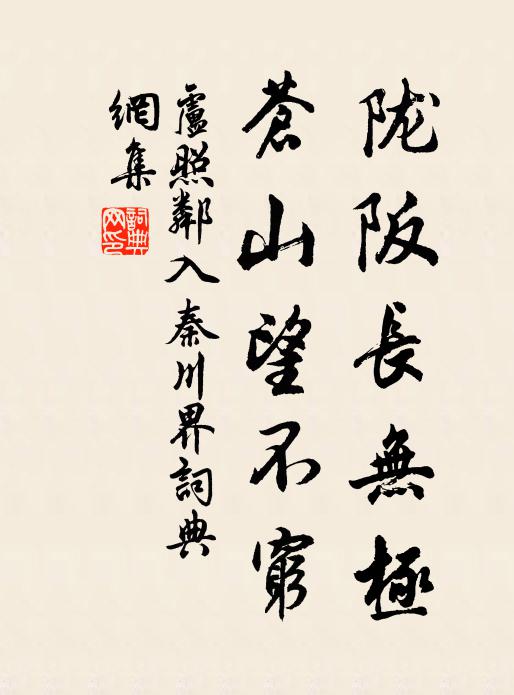 陇阪長無極
蒼山望不窮
盧照鄰入秦川界詞典
網集
詞典
网印